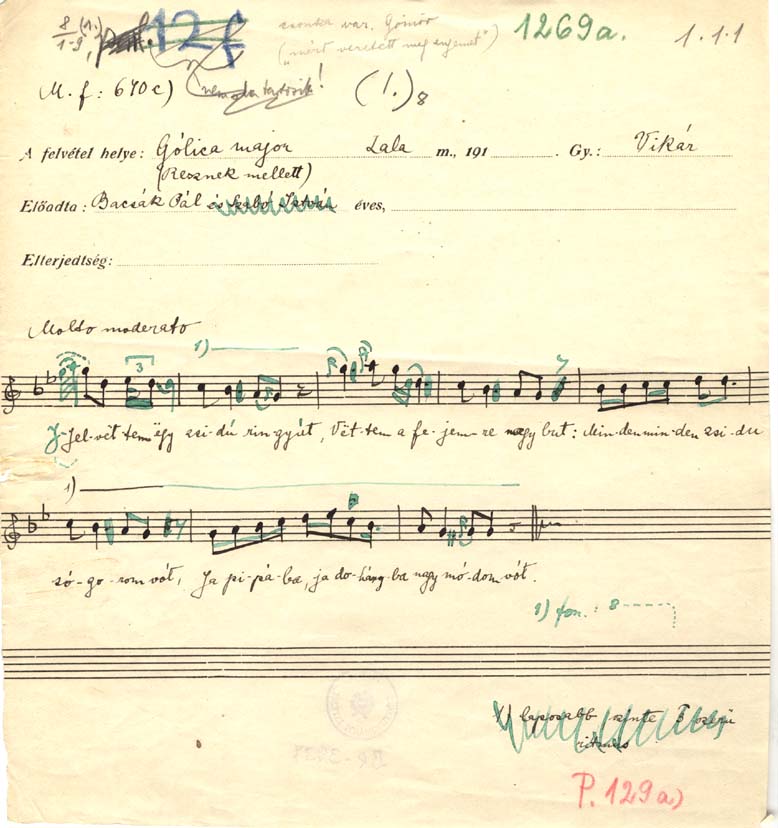 8 (1.)
1-9, 12f csonka var. Gömör 1269a. 1.1.1
("mért veretett meg engemet")
M. f: 670c) nem ide tartozik! (1.)8
A felvétel helye: Gólica major Zala m., 191 Gy.: Vikár
(Resznek mellett)
Előadta: Bacsák Pál és Szabó István éves,
Elterjedtség:
Molto moderato
1) 3
Jel-vët-tem ëgy zsi-dú rin-gyút, Vët-tem a fe-jem-re nagy but: Min-den min-den zsi-du
1)
só-go-rom vót, Ja pi-pá-ba, ja do-háng-ba nagy mó-dom vót.
1) fon.: 8
1) laposabb szinte
P. 129a)